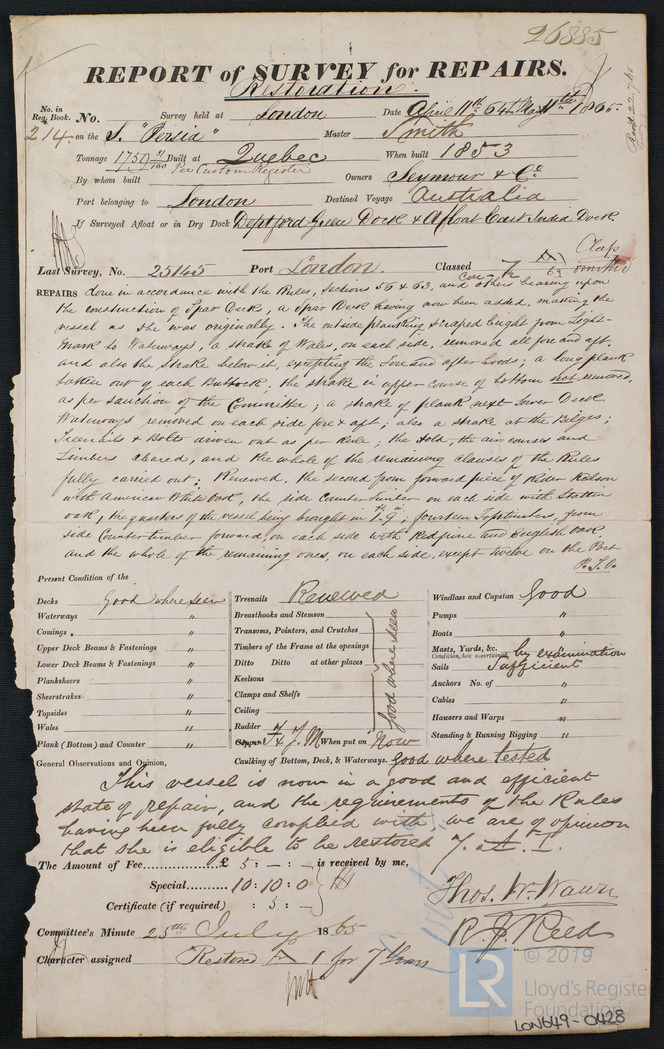 26885
REPORT of SURVEY for REPAIRS.
Restoration
No. in Reg. Book. No. Survey held at London Date April 11th 64 to May 11th 1865.
Recd 22.7.65
214 on the S. "Persia" Master Smith
Tonnage 1750 51/100 Built at Quebec When built 1853
Per Custom Register
By whom built Owners Seymour & Co
Port belonging to London Destined Voyage Australia
If Surveyed Afloat or in Dry Dock Deptford Green Dock & Afloat East India Dock
Class omitted
Last Survey, No. 25145 Port London. Classed
REPAIRS done in accordance with the Rules, Sections 56 & 63, and others bearing upon
the construction of Spar Decks, a Spar Deck having now been added, making the
vessel as she was originally. The outside planking scraped bright from Light-
mark to Waterways, a strake of Wales, on each side, removed all fore and aft,
and also the strake below it, excepting the Fore and after hoods; a long plank
taken out of each Buttock; the strake in upper course of bottom not removed,
as per sanction of the Committee; a strake of plank next Lower Deck
Waterways removed on each side fore & aft; also a strake at the Bilges;
Treenails & Bolts driven out as per Rule; the Hold, the air courses and
Limbers cleared, and the whole of the remaining clauses of the Rules
fully carried out; Renewed, the second from forward piece of Rider Keelson
with American White Oak, the side Counter timber on each side with Stettin
oak, the quarters of the vessel being brought in 1ft 9in; fourteen Toptimbers, from
side Counter timber forward, on each side with Red pine and English Oak
and the whole of the remaining ones, on each side, except twelve on the Port
P.T.O.
Present Condition of the
Decks Good where seen
Waterways "
Comings . "
Upper Deck Beams & Fastenings "
Lower Deck Beams & Fastenings "
Planksheers "
Sheerstrakes "
Topsides "
Wales "
Plank (Bottom) and Counter "
Treenails Renewed
Breasthooks and Stemson
Transoms, Pointers, and Crutches
Timbers of the Frame at the openings
Ditto Ditto at other places
Keelsons
Clamps and Shelfs
Ceiling
Rudder
Good where seen
Copper When put on Now
Caulking of Bottom, Deck, & Waterways. Good where tested
Windlass and Capstan Good
Pumps "
Boats "
Masts, Yards, &c. by examination
Condition, how ascertained
Sails Sufficient
Anchors No. of "
Cables "
Hawsers and Warps "
Standing & Running Rigging "
General Observations and Opinion,
This vessel is now in a good and efficient
state of repair, and the requirements of the Rules
having been fully complied with, we are of opinion
that she is eligible to be restored 7. A. 1.
The Amount of Fee £ 5 : - : - is received by me,
Special 10 : 10 : 0
Certificate (if required) : 5 : -
Thos. W. Wawn
R. J. Reed
Committee's Minute 25th July 1865
Character assigned Restored A 1 for 7 Years
© 2019
LR
Lloyd's Register
Foundation
LON649-0428